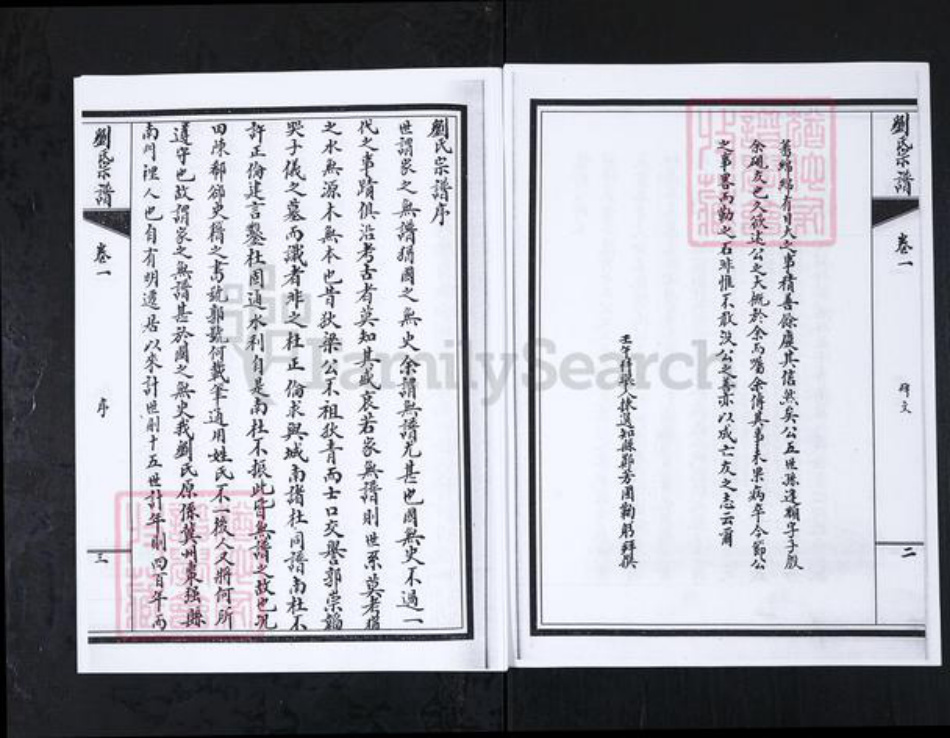 劉氏宗譜
卷一
碑文
二
舊綿綿有日大之事積善餘慶其信然矣公五世孫逢順字子殷
余硯友也久欲述公之大概於余而囑余傳其事未果病卒今節公
之事畧而勒之石非惟不敢沒公之善亦以成亡友之志云爾
壬午科舉人揀選知縣鄭芳圃鞠躬拜撰
劉氏宗譜序
世謂家之無譜猶國之無史余謂無譜尤甚也國無史不過一
代之事蹟俱沿考古者莫知其盛衰若家無譜則世系莫考猶
之水無源木無本也昔狄梁公不祖狄青而士口交譽郭崇韜
哭子儀之墓而識者非之杜正倫求與城南諸杜同譜南杜不
許正倫建言鑿杜固通水利自是南杜不振此皆無譜之故也况
田陳郗郤史籍之書號郭號何載筆通用姓氏不一後人又將何所
遵守也故謂家之無譜甚於國之無史我劉氏原係冀州棗強縣
南門裡人也自有明遷居以來計世則十五世計年則四百年而
劉氏宗譜
卷一
序
三
FamilySearch